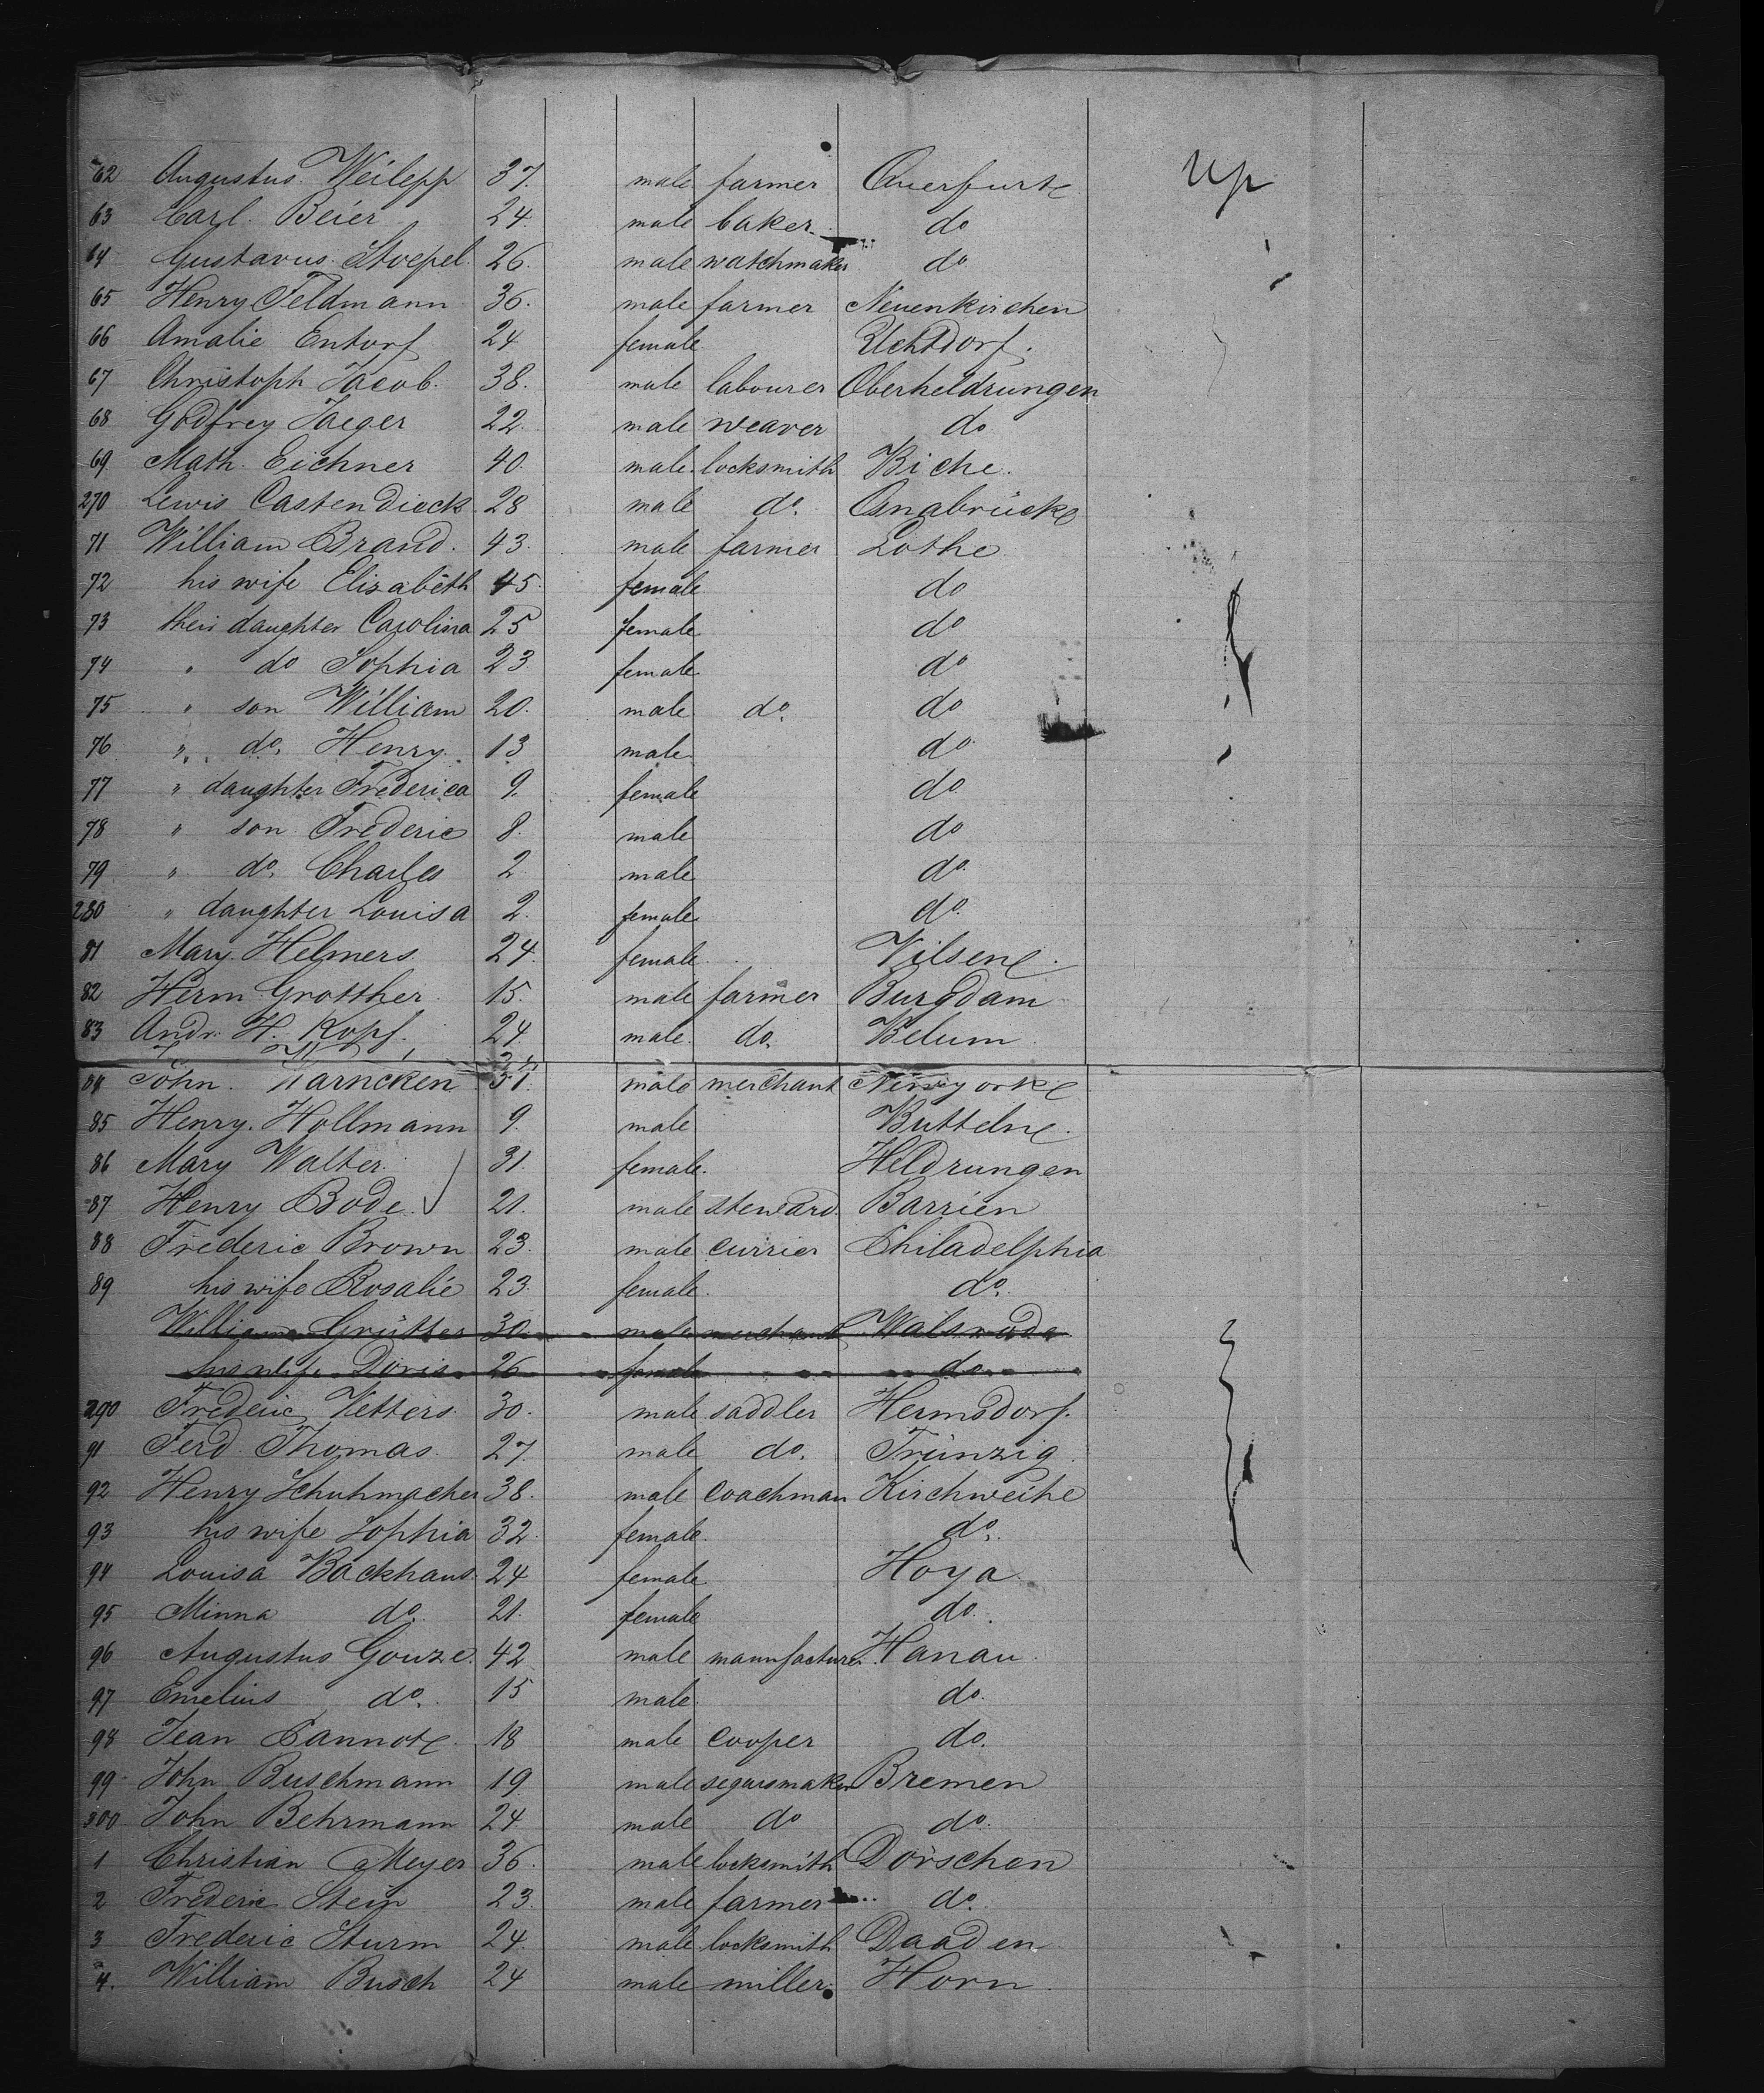 62 Augustus Weilepp 37. male farmer Querfurt Up
63 Carl Beier 24. male baker do
64 Gustavus Stoepel 26. male watchmaker do
65 Henry Feldmann 36. male farmer Neuenkirchen
66 Amalie Entorf 24 female Uchtdorf.
67 Christoph Jacob. 38. male labourer Oberheldrungen
68 Godfrey Jaeger 22. male weaver do
69 Math. Eichner 40. male locksmith Biche.
270 Lewis Castendieck 28 male do. Osnabrück
71 William Brand. 43. male farmer Lothe
72 his wife Elisabeth 45. female do
73 their daughter Carolina 25 female do
74 " do Sophia 23 female do
75 " son William 20. male do. do
76 " do. Henry. 13 male do
77 " daughter Frederica 9. female do.
78 " son Frederic 8. male do
79 " do. Charles 2 male do.
280 " daughter Louisa 2. female do.
81 Mary Helmers 24. female Vilsen.
82 Herm Grotther 15. male farmer Burgdam
83 Andr. H. Kopf. 24. male. do. Belum
84 John. Karncken 51. male merchant Newyork
85 Henry. Hollmann 9. male Butteln.
86 Mary Walter. 31. female. Heldrungen
87 Henry Bode. 21. male steward. Barrien
88 Frederic Brown 23. male currier Philadelphia
89 his wife Rosalie 23. female. do.
William Grütter 30. male merchant Walsrode
his wife Doris 26 female do
290 Frederic Vetters 30. male saddler Hermsdorf.
91 Ferd. Thomas. 27. male do. Trünzig.
92 Henry Schuhmacher 38. male coachman Kirchweihe
93 his wife Sophia 32. female. do.
94 Louisa Backhaus. 24 female Hoya.
95 Minna do. 21. female do.
96 Augustus Gouze. 42 male manufacturer Hanau.
97 Emelius do. 15 male. do.
98 Jean Pannot. 18 male cooper do.
99 John Buschmann 19 male segarsmaker Bremen
300 John Behrmann 24. male do do.
1 Christian Meyer 36. male locksmith Dorschen
2 Frederic Stein 23. male farmer do.
3 Frederic Sturm 24. male locksmith Daaden
4. William Busch 24 male miller. Horn.